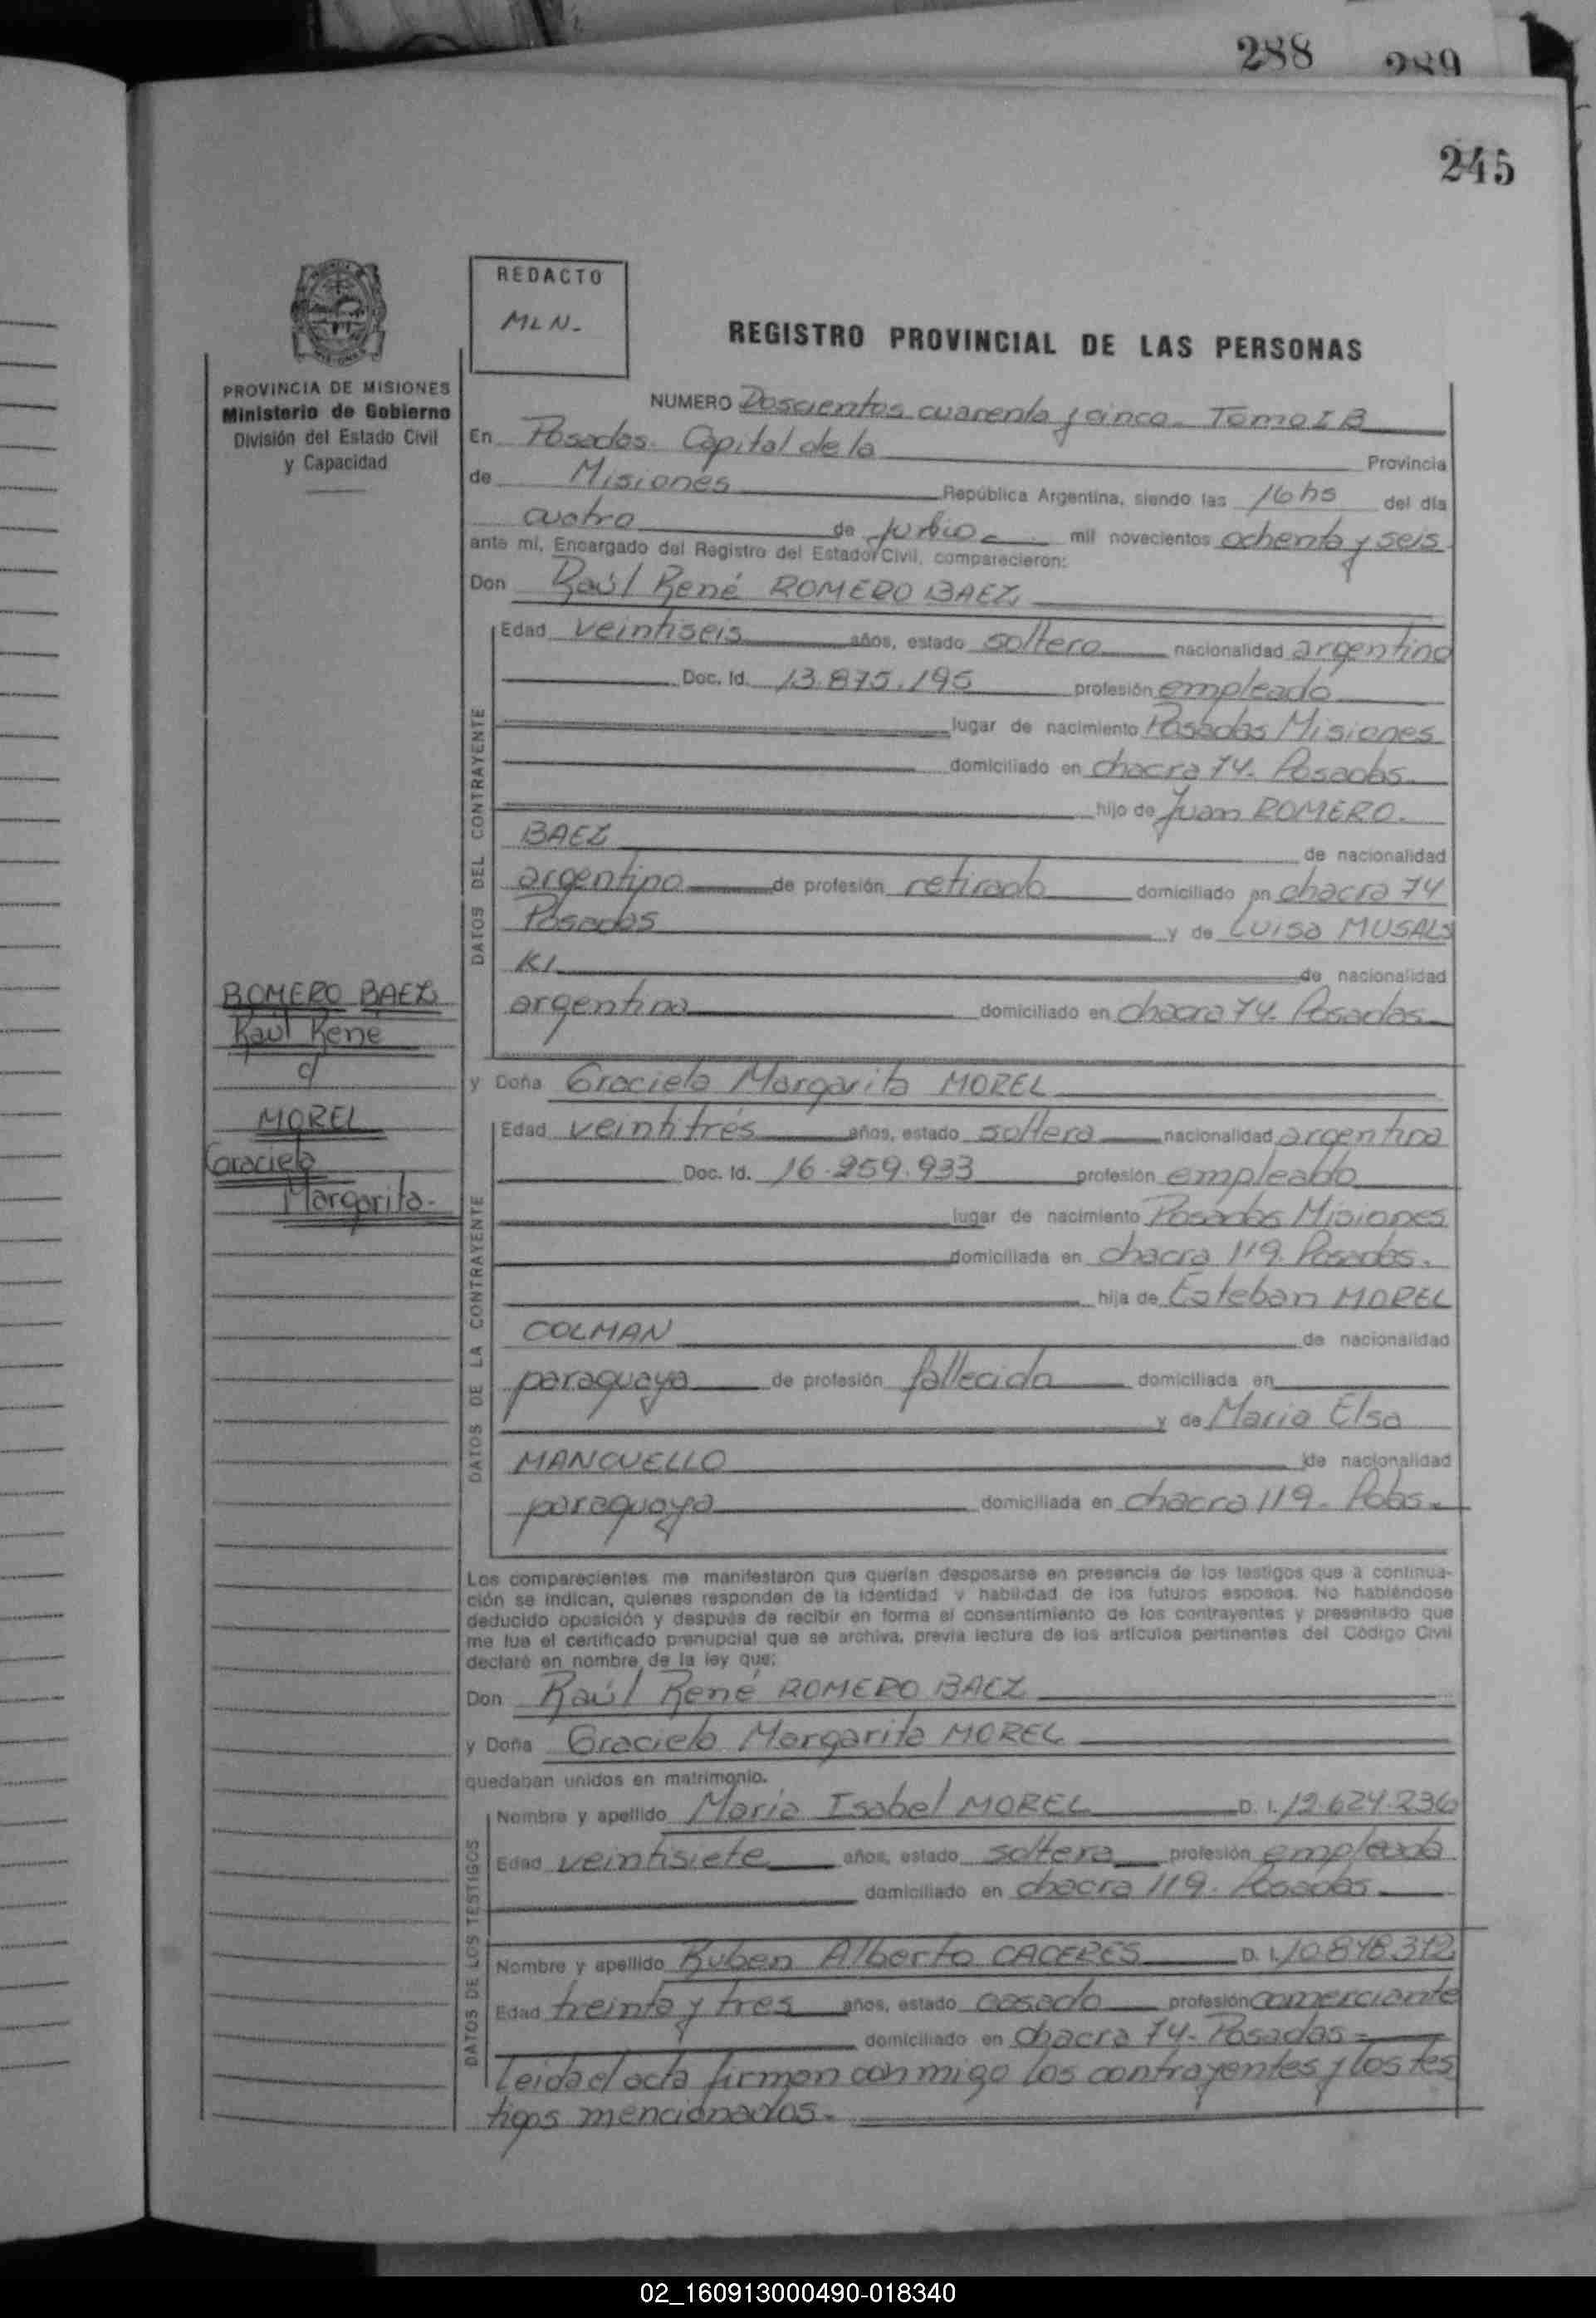 288 289
245
REDACTO
MLN-
REGISTRO PROVINCIAL DE LAS PERSONAS
PROVINCIA DE MISIONES
Ministerio de Gobierno
División del Estado Civil
y Capacidad
NUMERO Doscientos cuarenta y cinco. Tomo I B
En Posadas. Capital de la Provincia
de Misiones República Argentina, siendo las 16 hs del día
cuatro de mil novecientos ochenta y seis
ante mí, Encargado del Registro del Estado Civil, comparecieron:
Don Raúl René ROMERO BAEZ
DATOS DEL CONTRAYENTE
Edad veintiseis años, estado soltero nacionalidad argentino
Doc. Id. 13.875.195 profesión empleado
lugar de nacimiento Posadas Misiones
domiciliado en chacra 74. Posadas.
hijo de Juan ROMERO.
BAEZ de nacionalidad
argentino de profesión retirado domiciliado en chacra 74
Posadas y de Luisa MUSALS
KI de nacionalidad
argentina domiciliado en chacra 74. Posadas
ROMERO BAEZ
Raúl René
c/
MOREL
Graciela
Margarita-
y Doña Graciela Margarita MOREL
DATOS DE LA CONTRAYENTE
Edad veintitrés años, estado soltera nacionalidad argentina
Doc. Id. 16.259.933 profesión empleado
lugar de nacimiento Posadas Misiones
domiciliada en chacra 119. Posadas.
hija de Esteban MOREL
COLMAN de nacionalidad
paraguaya de profesión fallecido domiciliada en
y de Maria Elsa
MANCUELLO de nacionalidad
paraguaya domiciliada en chacra 119. Pdas.
Los comparecientes me manifestaron que querían desposarse en presencia de los testigos que a continua-
ción se indican, quienes responden de la identidad y habilidad de los futuros esposos. No habiéndose
deducido oposición y después de recibir en forma el consentimiento de los contrayentes y presentado que
me fue el certificado prenupcial que se archiva, previa lectura de los artículos pertinentes del Código Civil
declaré en nombre de la ley que:
Don Raúl René ROMERO BAEZ
y Doña Graciela Margarita MOREL
quedaban unidos en matrimonio.
DATOS DE LOS TESTIGOS
Nombre y apellido Maria Isabel MOREL D. I. 12.624.236
Edad veintisiete años, estado soltera profesión empleada
domiciliado en chacra 119. Posadas
Nombre y apellido Ruben Alberto CACERES D. I. 10.848.372
Edad treinta y tres años, estado casado profesión comerciante
domiciliado en chacra 74- Posadas-
Leida el acta firman conmigo los contrayentes y los tes
tigos mencionados-
02_160913000490-018340